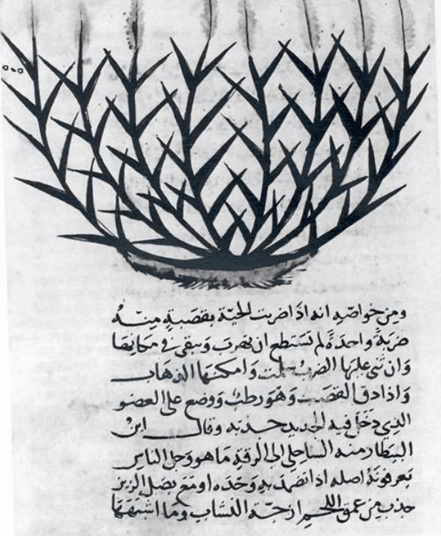 ومن خواصه انه اذا ضربت الحية بقصبة منه
ضربة واحدة لم تستطع ان تهرب وتبقى في مكانها
وان ثنى عليها الضرب وامكنها الذهاب
واذا دق القصب وهو رطب ووضع على العضو
الذي دخل فيه الحديد جذبه وقال ابن
البيطار منه الساحلي الى الرقة ما هو وجل الناس
يعرفونه اصله اذا تضمد به وحده او مع بصل الزيز
جذب من عمق اللحم ازجة النشاب وما اشبهها